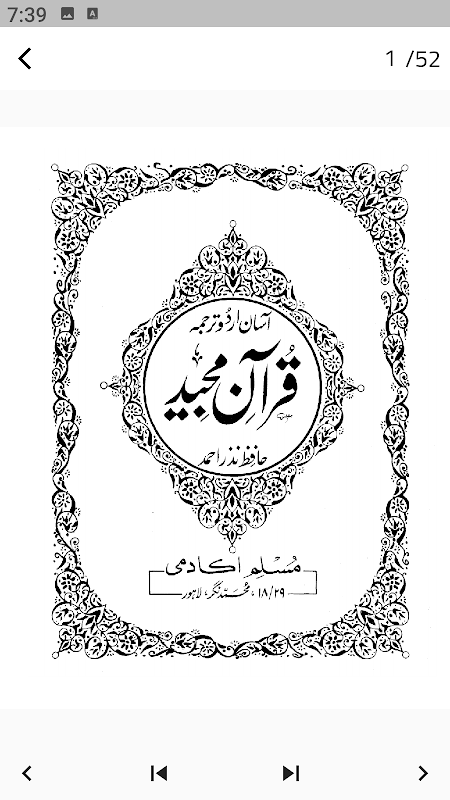 7:39
A
1 /52
آسان اردو ترجمہ
قُرآنِ مجید
حافظ نذر احمد
مُسْلِم اکادمی
۱۸/۲۹، محمد نگر، لاہور